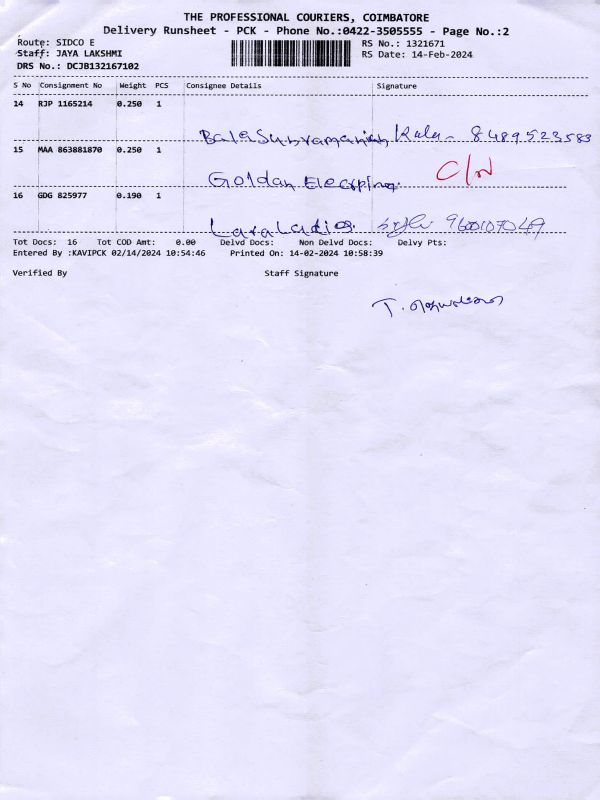 THE PROFESSIONAL COURIERS, COIMBATORE
Delivery Runsheet - PCK - Phone No.:0422-3505555 - Page No.:2
Route: SIDCO E RS No.: 1321671
Staff: JAYA LAKSHMI RS Date: 14-Feb-2024
DRS No.: DCJB132167102
S No Consignment No Weight PCS Consignee Details Signature
14 RJP 1165214 0.250 1
Balasubramanian Kala - 8489523583
15 MAA 863881870 0.250 1
Goldan C/N
16 GDG 825977 0.190 1
Lara Ladies 9600107049
Tot Docs: 16 Tot COD Amt: 0.00 Delvd Docs: Non Delvd Docs: Delvy Pts:
Entered By :KAVIPCK 02/14/2024 10:54:46 Printed On: 14-02-2024 10:58:39
Verified By Staff Signature